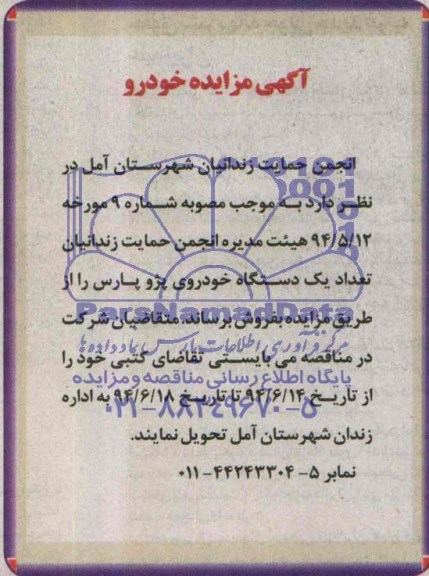 آگهی مزایده خودرو
انجمن حمایت زندانیان شهرستان آمل در
نظر دارد به موجب مصوبه شماره ۹ مورخه
۹۴/۵/۱۲ هیئت مدیره انجمن حمایت زندانیان
تعداد یک دستگاه خودروی پژو پارس را از
ParsNamadData
طریق مزایده بفروش برساند. متقاضیان شرکت
در مناقصه می بایستی تقاضای کتبی خود را
پایگاه اطلاع رسانی مناقصه و مزایده
از تاریخ ۹۴/۶/۱۴ تا تاریخ ۹۴/۶/۱۸ به اداره
۰۲۱-۸۸۳۴۹۶۷۰-۵
زندان شهرستان آمل تحویل نمایند.
نمابر ۵-۰۱۱-۴۴۲۴۳۳۰۴